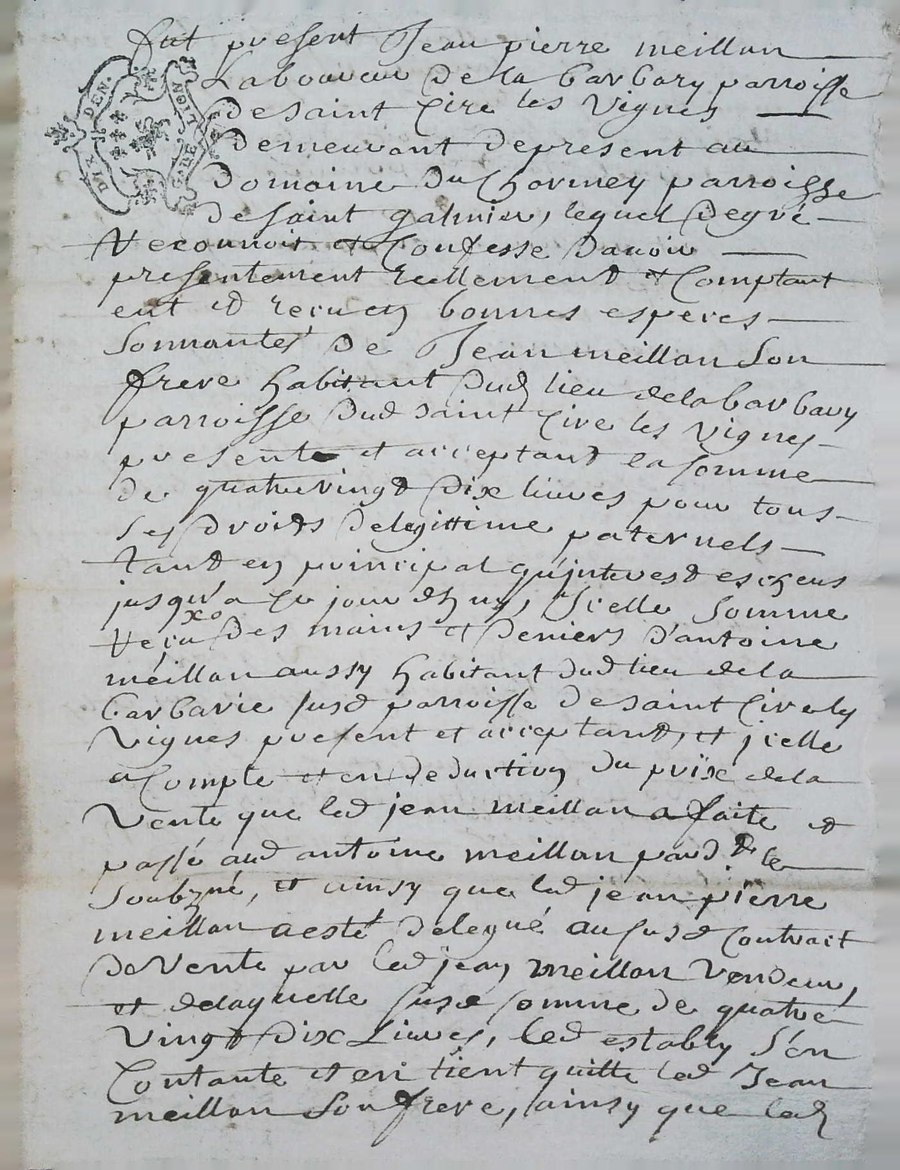 fut present Jean pierre meillan
Laboureur de la barbary parroisse
de saint Cire les Vignes
DIX DEN. GNALITE LION
demeurant de present au
domaine du Chormey parroisse
de saint galmier, lequel de gré
reconnoit et Confesse d'avoir
presentement reellement et Comptant
eut et recu en bonnes especes
Sonnantes de Jean meillan son
frere habitant dud lieu de la barbary
parroisse dud saint Cire les Vignes
present et acceptant la somme
de quatrevingt dix livres pour tous
ses droits de legittime paternels
tant en principal qu'jnterest escheus
jusqu'a ce jour d'huy, Jcelle somme
reçu des mains et deniers d'antoine
meillan aussy habitant dud lieu de la
barbarie susd parroisse de saint Cire les
Vignes present et acceptant, et jcelle
a Compte et en deduction du prix de la
Vente que led jean meillan a faite et
passé aud antoine meillan pard le
Soubzné, et ainsy que led jean pierre
meillan a esté delegué au susd Contrait
de Vente par led jean meillan Vendeur,
et de laquelle susd somme de quatre
Vingt dix Livres, led estably s'en
Contante et en tient quitte led Jean
meillan son frere, ainsy que led